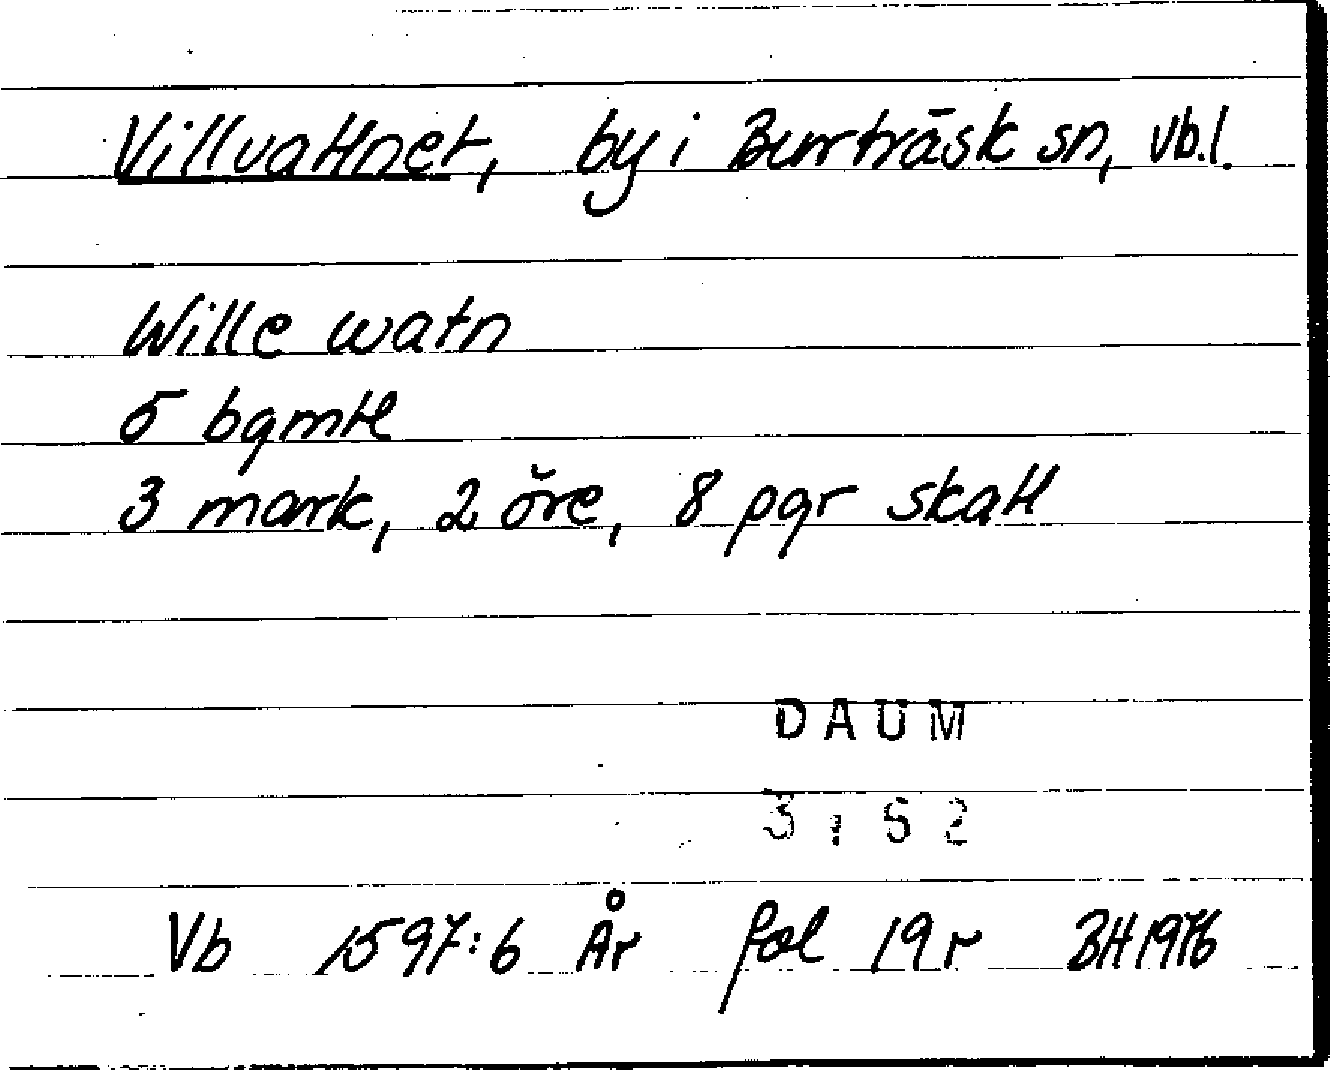 Villvattnet, by i Burträsk sn, Vb.l.
Wille watn
5 bgmtl
3 mark, 2 öre, 8 pgr skatt
DAUM
3:62
Vb 1597:6 År fol 19r BH 1976